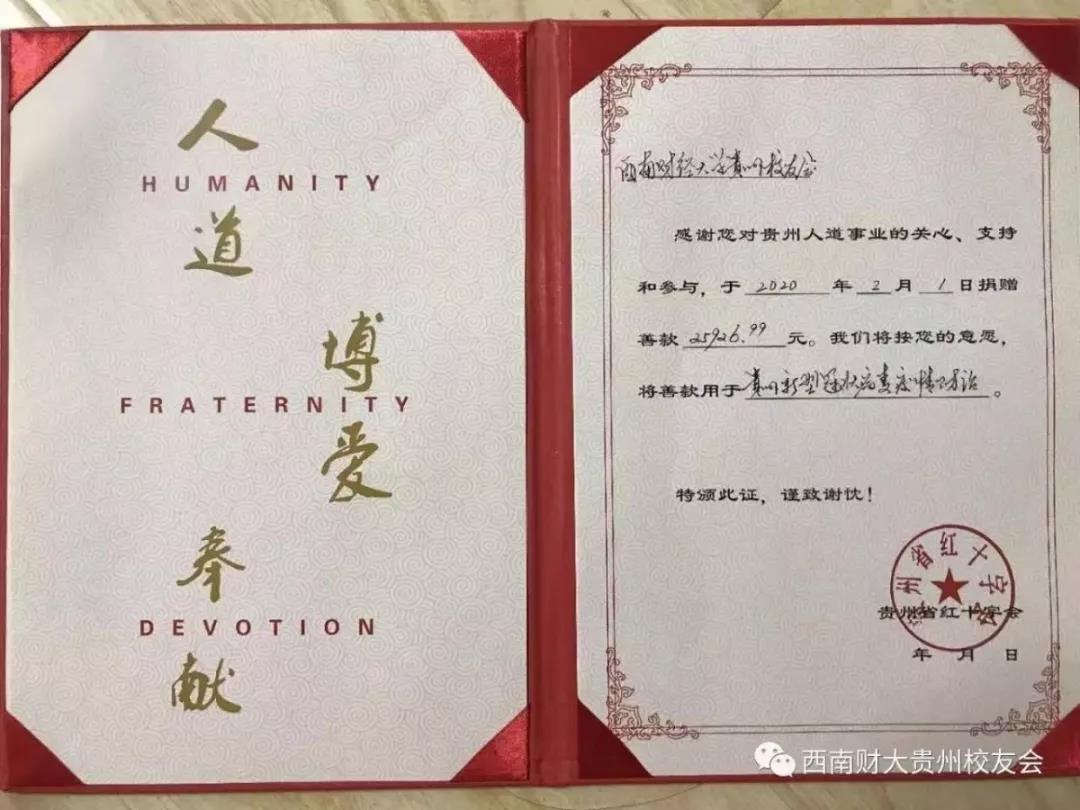 人
HUMANITY
道
博
FRATERNITY
爱
奉
DEVOTION
献
西南财经大学贵州校友会
感谢您对贵州人道事业的关心、支持
和参与，于 2020 年 2 月 1 日捐赠
善款 25926.99 元。我们将按您的意愿，
将善款用于 贵州新型冠状病毒疫情防治 。
特颁此证，谨致谢忱！
贵州省红十字会
贵州省红十字会
年 月 日
西南财大贵州校友会